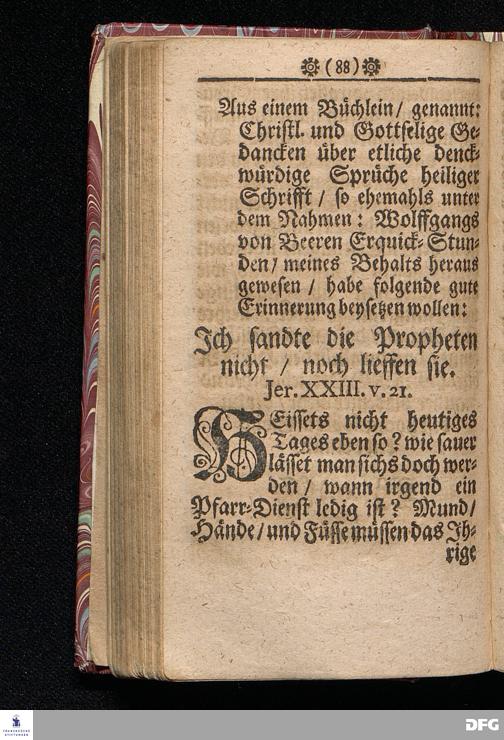 (88)
Aus einem Büchlein/ genannt:
Christl. und Gottselige Ge-
dancken über etliche denck-
würdige Sprüche heiliger
Schrifft / so ehemahls unter
dem Nahmen: Wolffgangs
von Beeren Erquick-Stun-
den/ meines Behalts heraus
gewesen / habe folgende gute
Erinnerung beysetzen wollen:
Ich sandte die Propheten
nicht / noch lieffen sie.
Jer. XXIII. v. 21.
HEissets nicht heutiges
Tages eben so? wie sauer
lässet man sichs doch wer-
den / wann irgend ein
Pfarr-Dienst ledig ist? Mund/
Hände/ und Füsse müssen das Ih-
rige
FRANCKESCHE
STIFTUNGEN
DFG